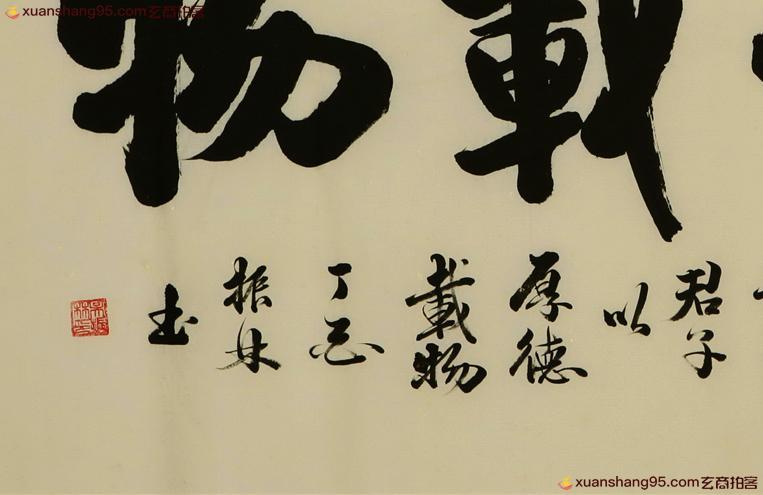 xuanshang95.com玄商拍客
載物
君子
以
厚德
載物
丁亥
振林
书
xuanshang95.com玄商拍客